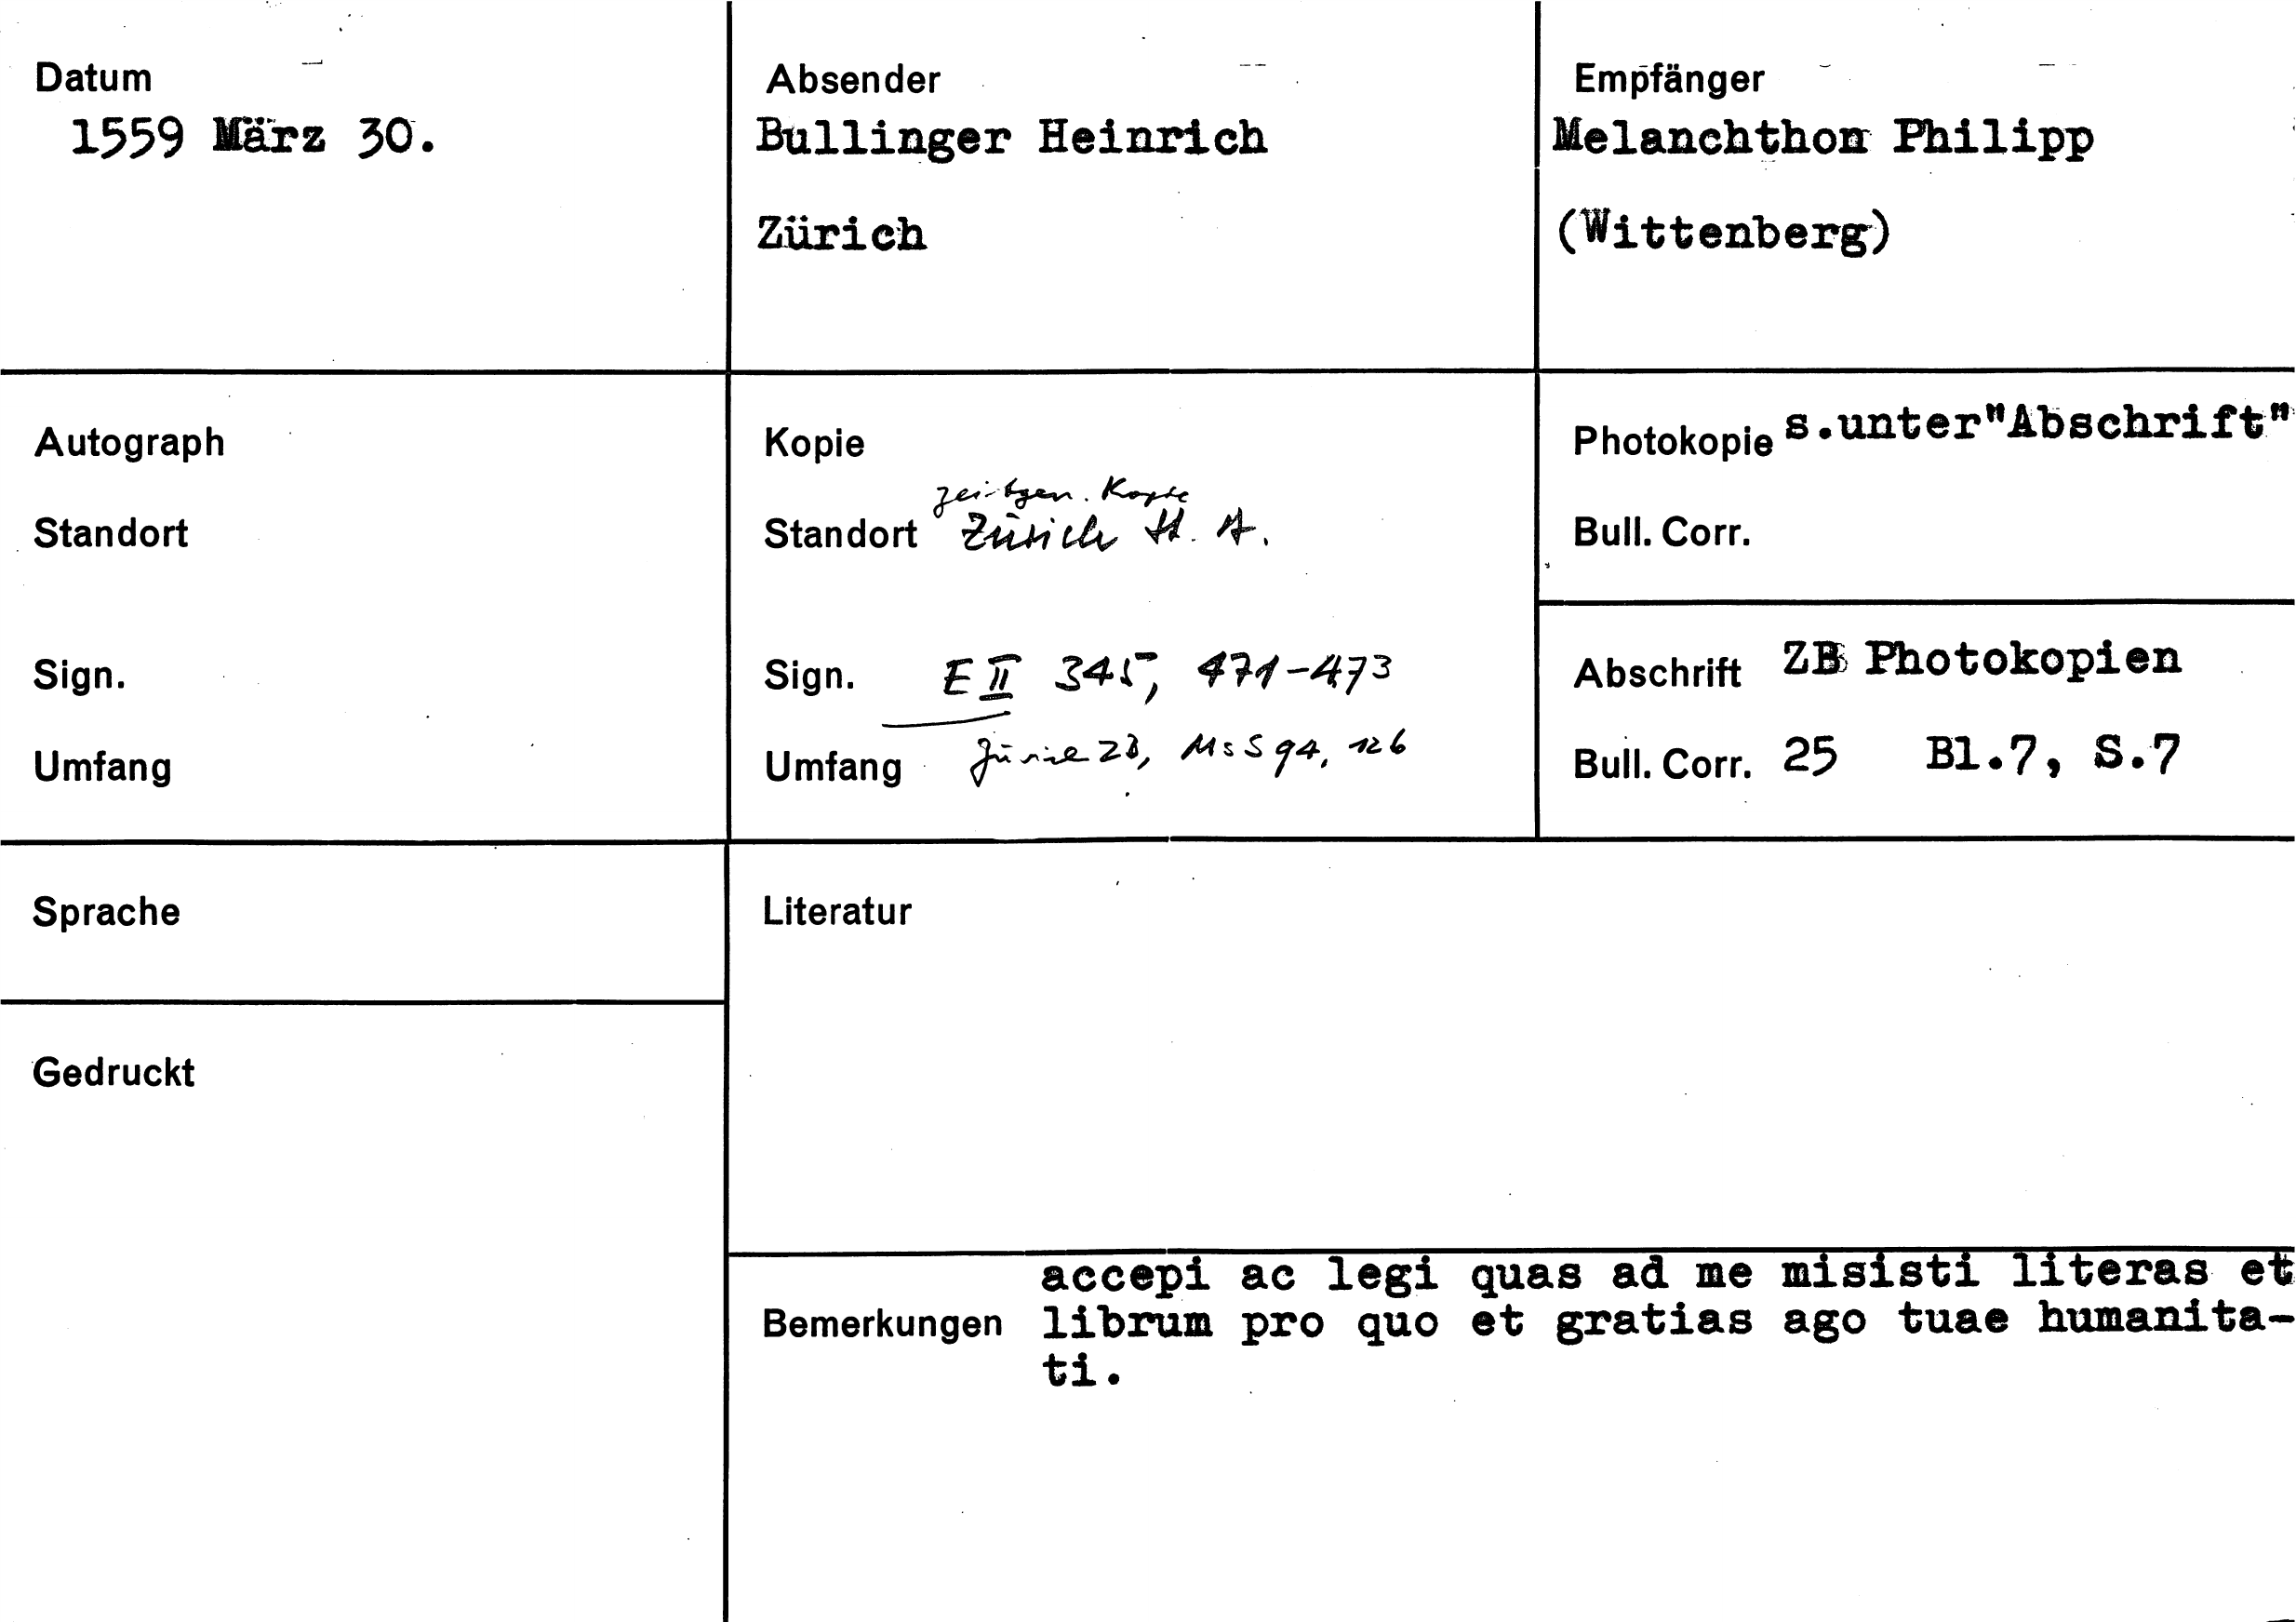 Datum
1559 März 30.
Absender
Bullinger Heinrich
Zürich
Empfänger
Melanchthon Philipp
(Wittenberg)
Autograph
Standort
Sign.
Umfang
Kopie
zeitgen. Kopie
Standort Zürich St. A.
Sign. E II 345, 471-473
Umfang Zürich ZB, Ms S 94, 126
Photokopie s.unter"Abschrift"
Bull. Corr.
Abschrift ZB Photokopien
Bull. Corr. 25 Bl.7, S.7
Sprache
Gedruckt
Literatur
accepi ac legi quas ad me misisti literas et
Bemerkungen librum pro quo et gratias ago tuae humanita-
ti.